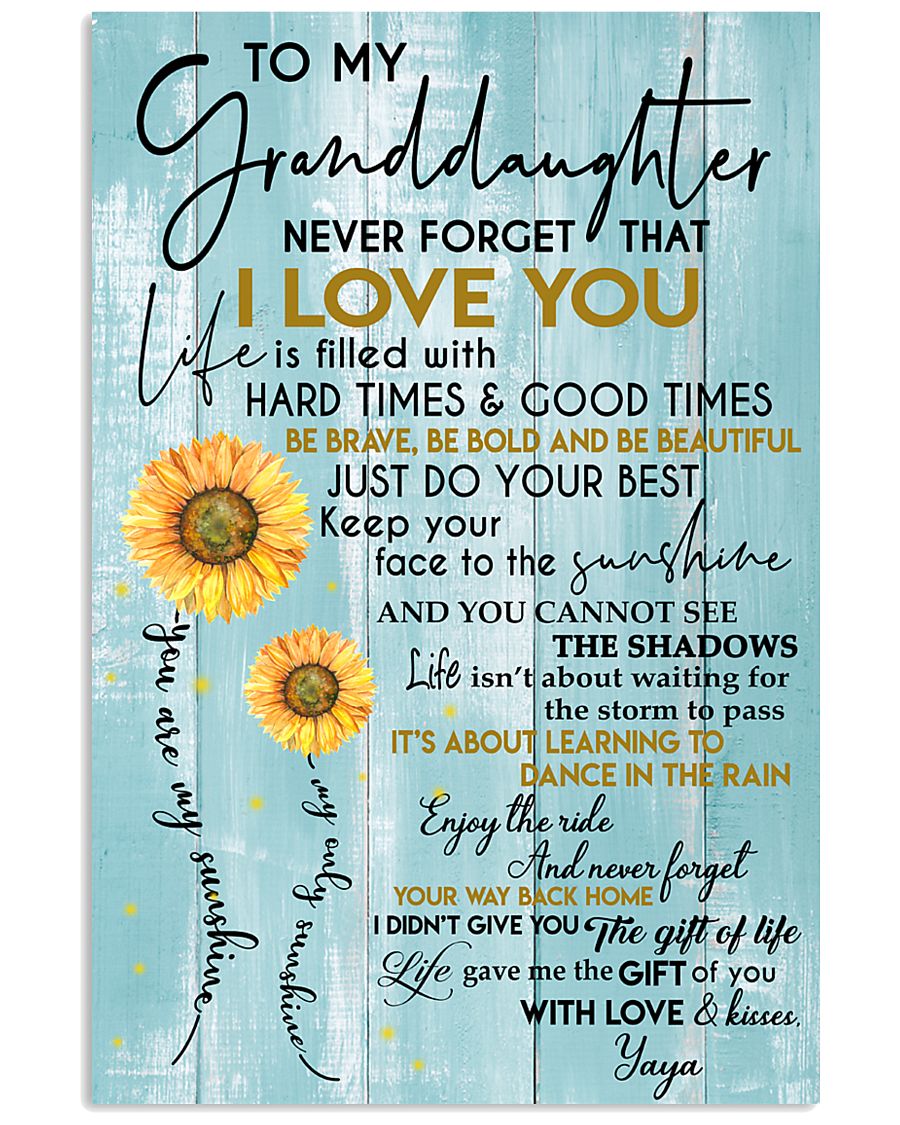 TO MY
Granddaughter
NEVER FORGET THAT
I LOVE YOU
Life is filled with
HARD TIMES & GOOD TIMES
BE BRAVE, BE BOLD AND BE BEAUTIFUL
JUST DO YOUR BEST
Keep your
face to the sunshine
AND YOU CANNOT SEE
THE SHADOWS
Life isn't about waiting for
the storm to pass
IT'S ABOUT LEARNING TO
DANCE IN THE RAIN
Enjoy the ride
And never forget
YOUR WAY BACK HOME
I DIDN'T GIVE YOU The gift of life
Life gave me the GIFT of you
WITH LOVE & kisses,
Yaya
you are my sunshine
my only sunshine